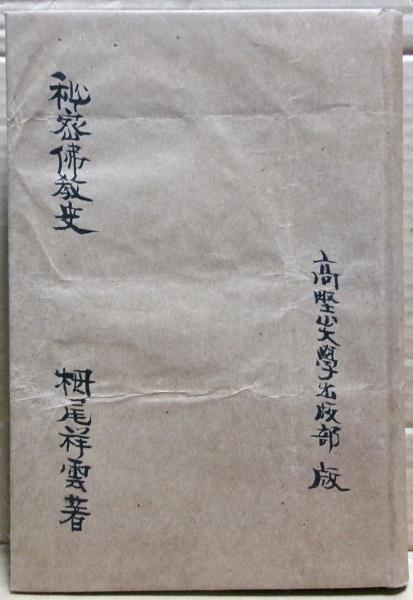 高野山大學出版部 版
秘密佛教史
栂尾祥雲著